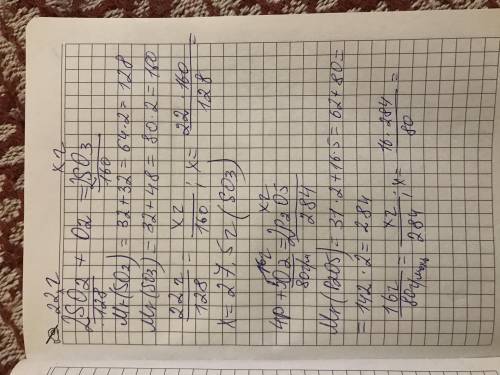 22г xг
2SO2 + O2 = 2SO3
128 160
Mr(SO2) = 32+32=64·2=128
Mr(SO3) = 32+48=80·2=160
22г/128 = xг/160; x= 22·160/128 =
x=27,5г (SO3)
16г xг
4P+5O2=2P2O5
80г/м 284
Mr(P2O5)=31·2+16·5=62+80=
=142·2=284
16г/80г/моль = xг/284; x= 16·284/80 =